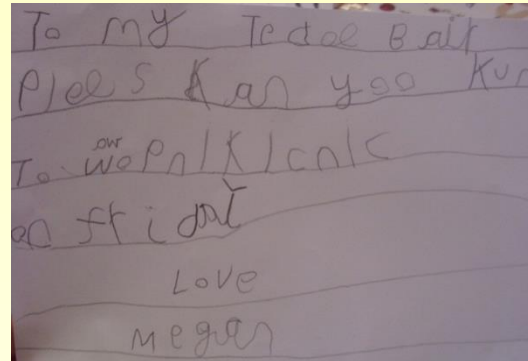 To my Tedee Bair
Plees Kan yoo Kun
To ow Pn/K/cn/c
on friday
Love
Megan